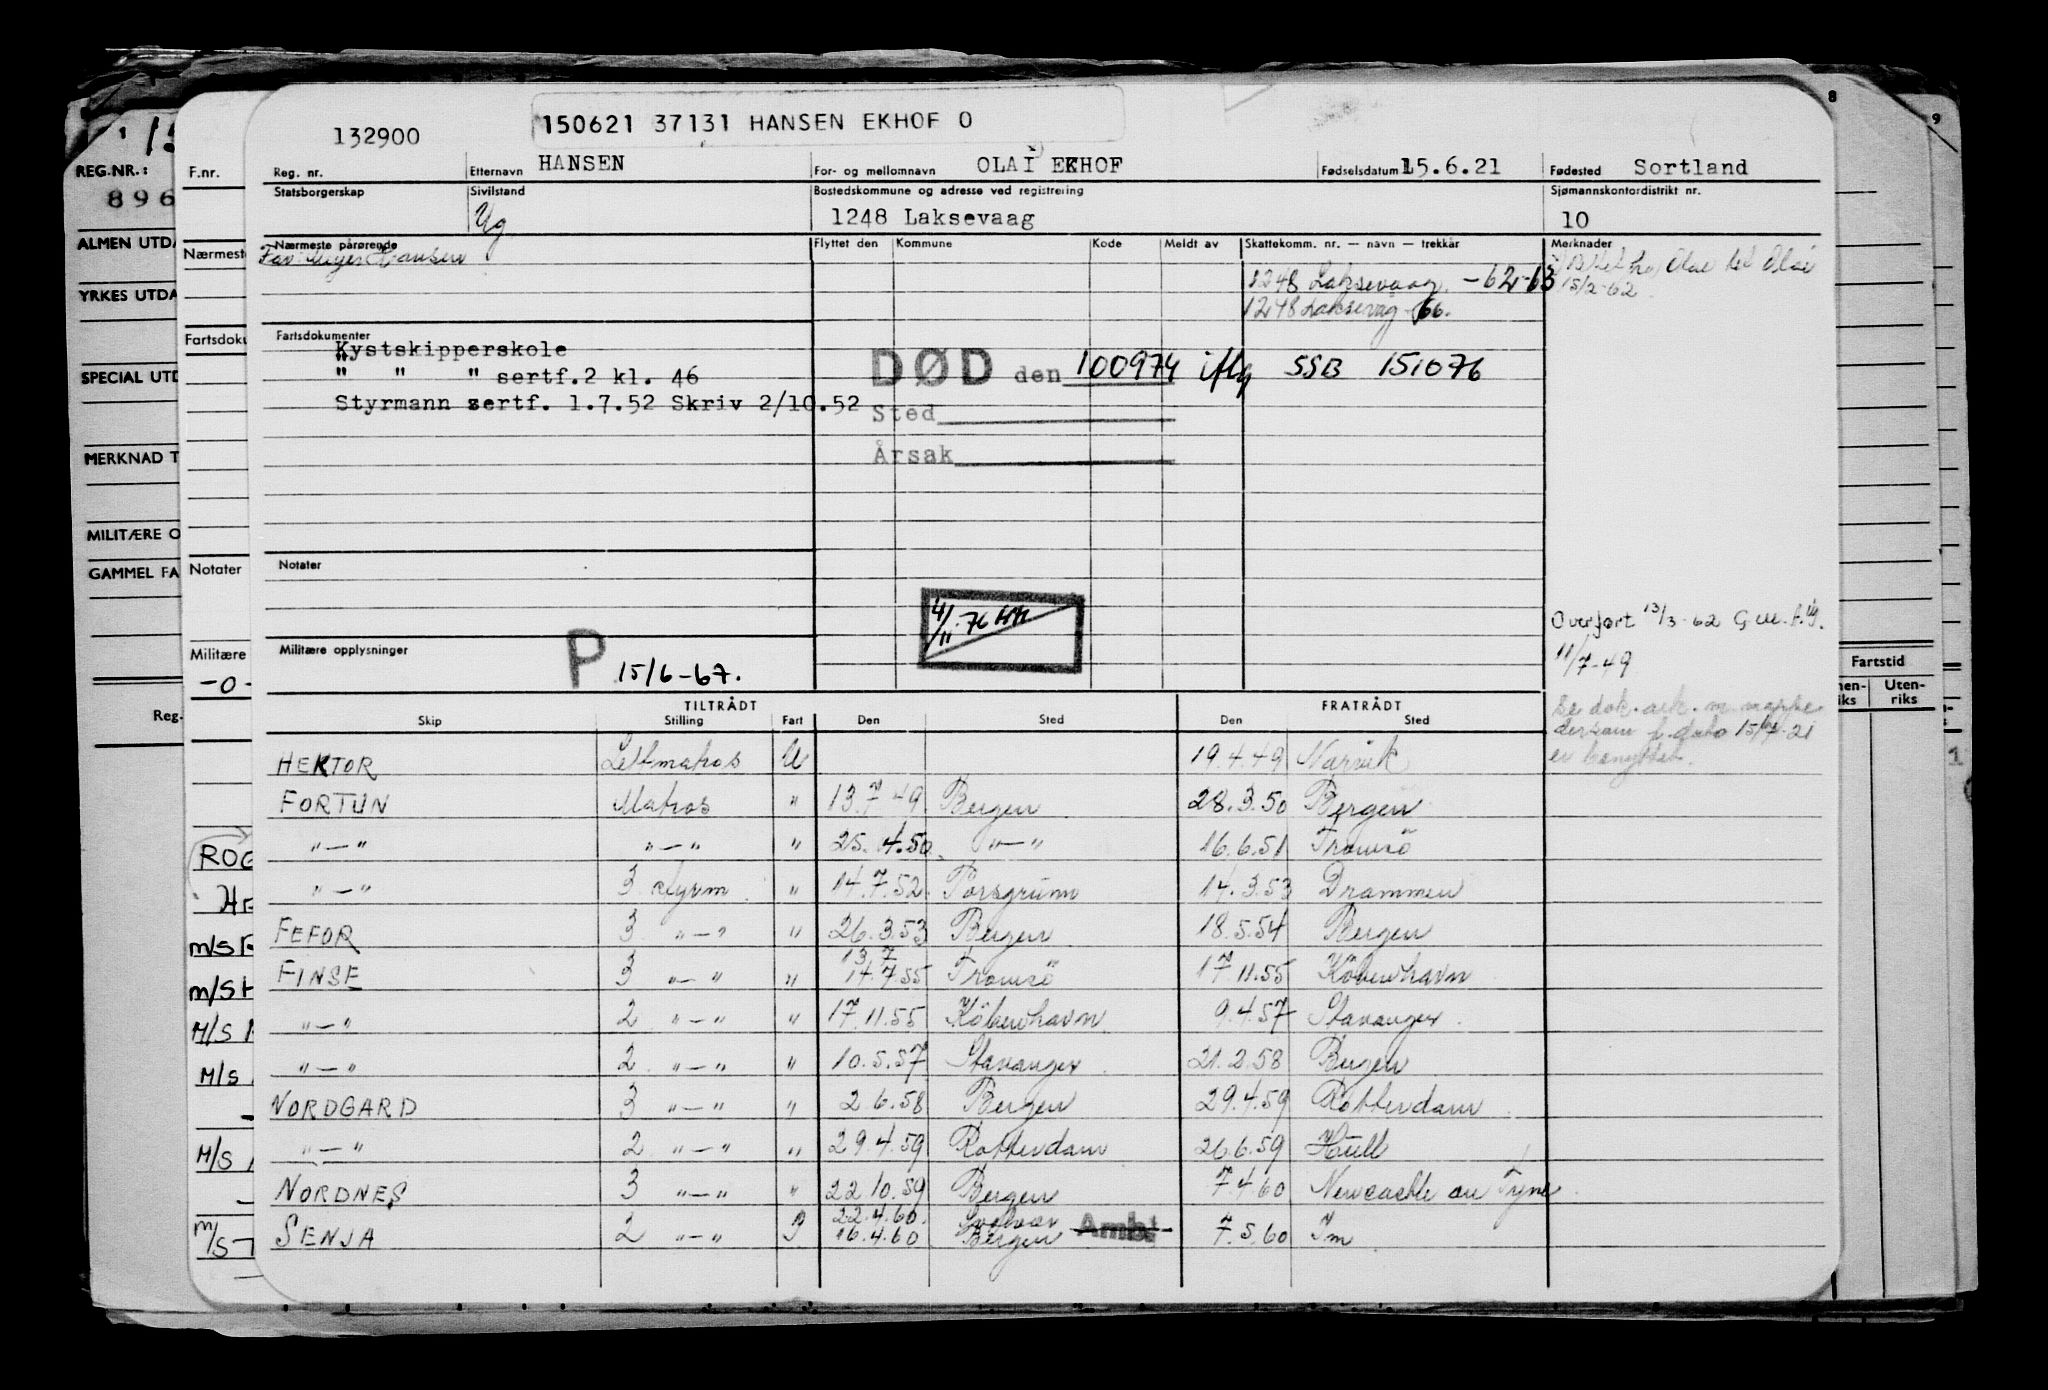 132900
150621 37131 HANSEN EKHOF O
Reg. nr.
Etternavn HANSEN
For- og mellomnavn OLAI EKHOF
Fødselsdatum 15.6.21
Fødested Sortland
Statsborgerskap
Sivilstand Ug
Bostedskommune og adresse ved registrering
1248 Laksevaag
Sjømannskontordistrikt nr.
10
Nærmeste pårørende
Far: Hansen
Flyttet den Kommune Kode Meldt av Skattekomm. nr. — navn — trekkår
1248 Laksevaag. -62-63
1248 Laksevag -66.
Merknader
15/2-62
Fartsdokumenter
Kystskipperskole
" " " sertf.2 kl. 46
Styrmann sertf. 1.7.52 Skriv 2/10.52
DØD den 100974 iflg SSB 151076
Sted
Årsak
Notater
4/11-76
Militære opplysninger
P 15/6-67.
Overført 13/3-62
11/7-49
TILTRÅDT FRATRÅDT
Skip Stilling Fart Den Sted Den Sted
HEKTOR Lettmatros U 19.4.49 Narvik
FORTUN Matros " 13.7.49 Bergen 28.3.50 Bergen
"—" "—" " 25.4.50 "—" 16.6.51 Tromsö
"—" 3 styrm " 14.7.52 Porsgrunn 14.3.53 Drammen
FEFOR 3 "—" " 26.3.53 Bergen 18.5.54 Bergen
13 7
FINSE 3 "—" " 14.7.55 Tromsö 17.11.55 Köbenhavn
"—" 2 "—" " 17.11.55 Köbenhavn 9.4.57 Stavanger
"—" 2 "—" " 10.5.57 Stavanger 21.2.58 Bergen
NORDGARD 3 "—" " 2 6.58 Bergen 29.4.59 Rotterdam
"—" 2 "—" " 29.4.59 Rotterdam 26.6.59 Hull
NORDNES 3 "—" " 22 10.59 Bergen 7.4.60 Newcastle on Tyne
22.4.60. Svolvær
SENJA 2 "—" 16.4.60 Bergen Ambt 7.5.60
REG.NR.:
896
ALMEN UTDA
YRKES UTDA
SPECIAL UTD
MERKNAD T
MILITÆRE O
GAMMEL FA
Reg.-
F.nr.
Nærmeste
Fartsdoku
Notater
Militære
-0-
ROG
HE
m/s F
m/s H
M/S
M/S
M/S
m/s T
8
9
Fartstid
nen-riks
Uten-riks
1